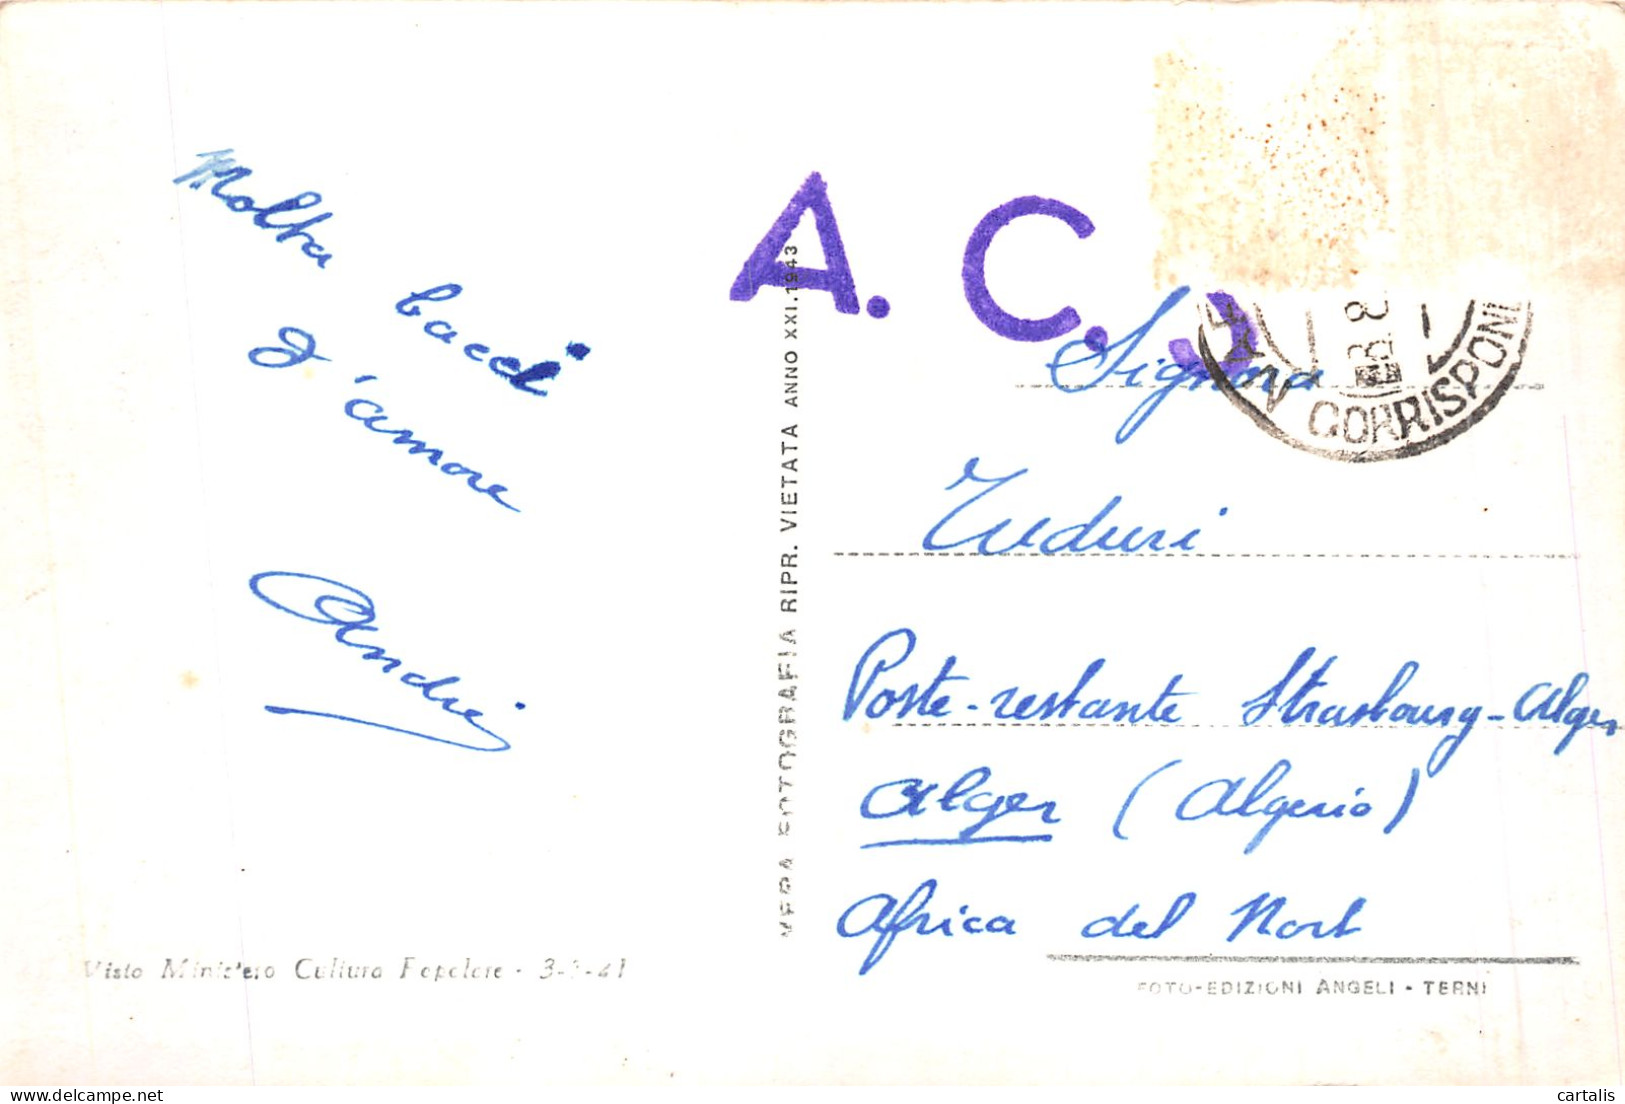 Molta
bacci
d'amore
André
Visto Ministero Cultura Popolare -
VERA FOTOGRAFIA RIPR. VIETATA ANNO XXI.1943
A. C. S
CORRISPONI
Signora
Tuduri
Poste-restante Strasbourg-Alger
Alger (Algerio)
Africa del Nort
FOTO-EDIZIONI ANGELI - TERNI
cartalis